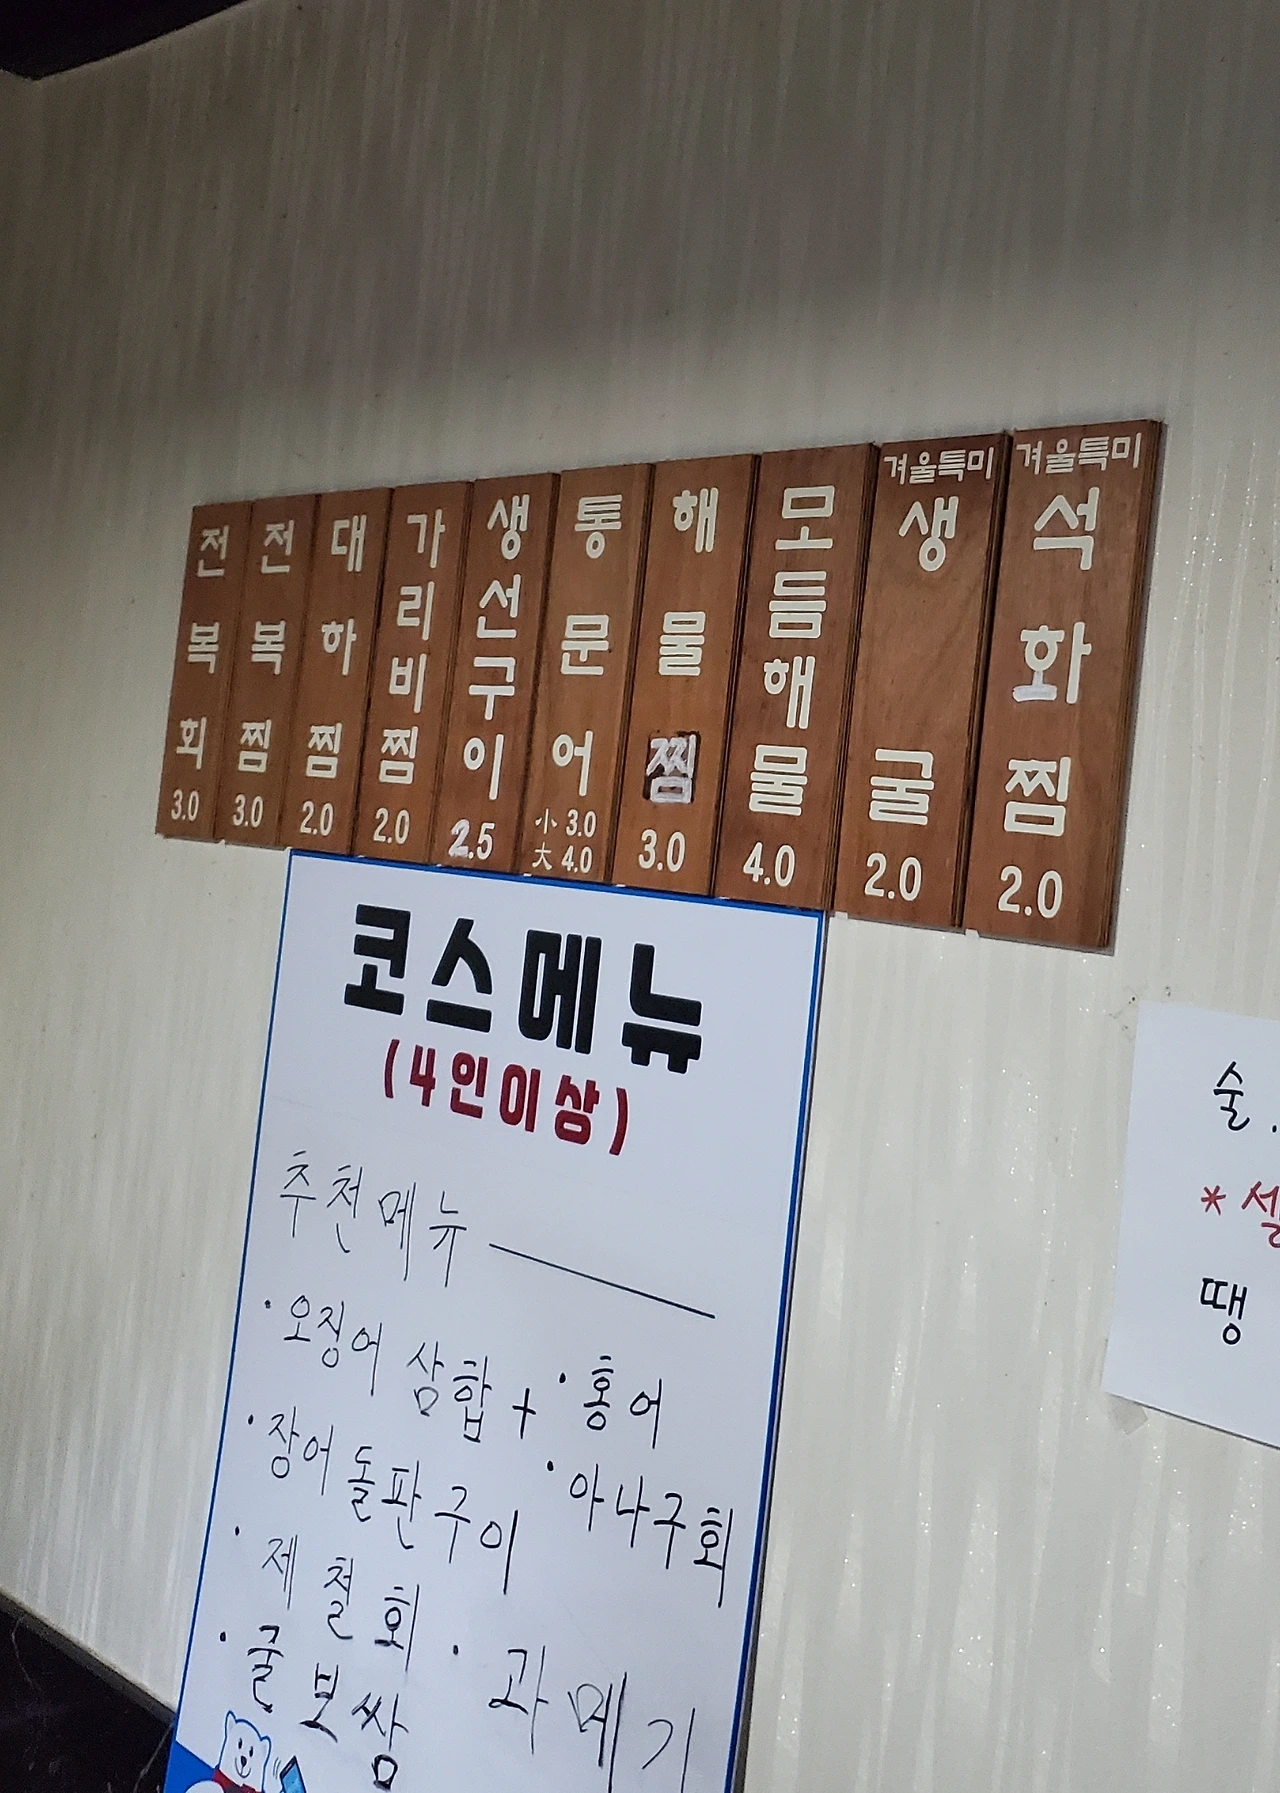 전복회 3.0
전복찜 3.0
대하찜 2.0
가리비찜 2.0
생선구이 2.5
통문어 小 3.0 大 4.0
해물찜 3.0
모듬해물 4.0
겨울특미 생굴 2.0
겨울특미 석화찜 2.0
코스메뉴
(4인이상)
추천메뉴
· 오징어 삼합 + · 홍어
· 장어 돌판구이 · 아나구회
· 제철회 · 과메기
· 굴보쌈
술.
* 셀
땡